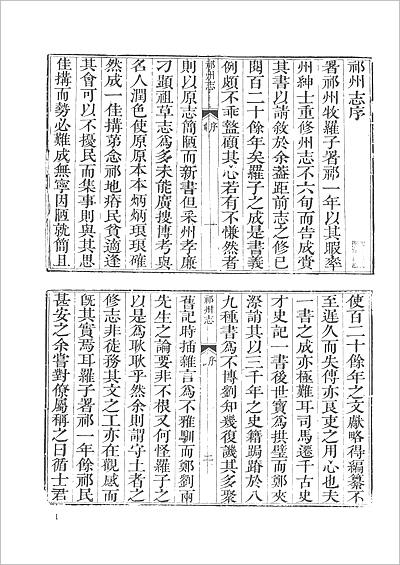 祁州志序
署祁州牧羅子署祁一年以其暇率
州紳士重修州志不六旬而告成賫
其書以請敘於余葢距前志之修已
閱百二十餘年矣羅子之成是書義
例頗不乖盭顧其心若有不慊然者
祁州志 序 一
則以原志簡陋而新書但采州孝廉
刁顯祖草志爲多未能廣搜博考與
名人潤色使原原本本炳炳琅琅確
然成一佳搆第念祁地瘠民貧適逢
其會可以不擾民而集事則與其思
佳搆而勢必難成無寧因陋就簡且
使百二十餘年之文獻略得編纂不
至遲久而失傳亦良吏之用心也夫
一書之成亦極難耳司馬遷千古史
才史記一書後世寶爲拱璧而鄭夾
漈謂其以三千年之史籍跼蹐於八
九種書爲不博劉知幾復譏其多聚
祁州志 序 二
舊記時插雜言爲不雅馴而鄭劉兩
先生之論要非不根又何怪羅子之
以是爲耿耿乎然余則謂守土者之
修志非徒務其文之工亦在觀感而
旣其實焉耳羅子署祁一年餘祁民
甚安之余嘗對僚屬稱之曰循士君
1